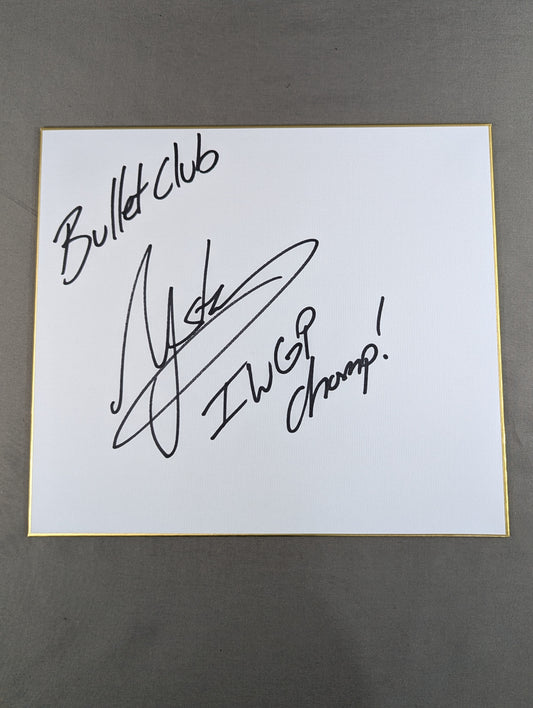 Bullet Club
IWGP
champ!